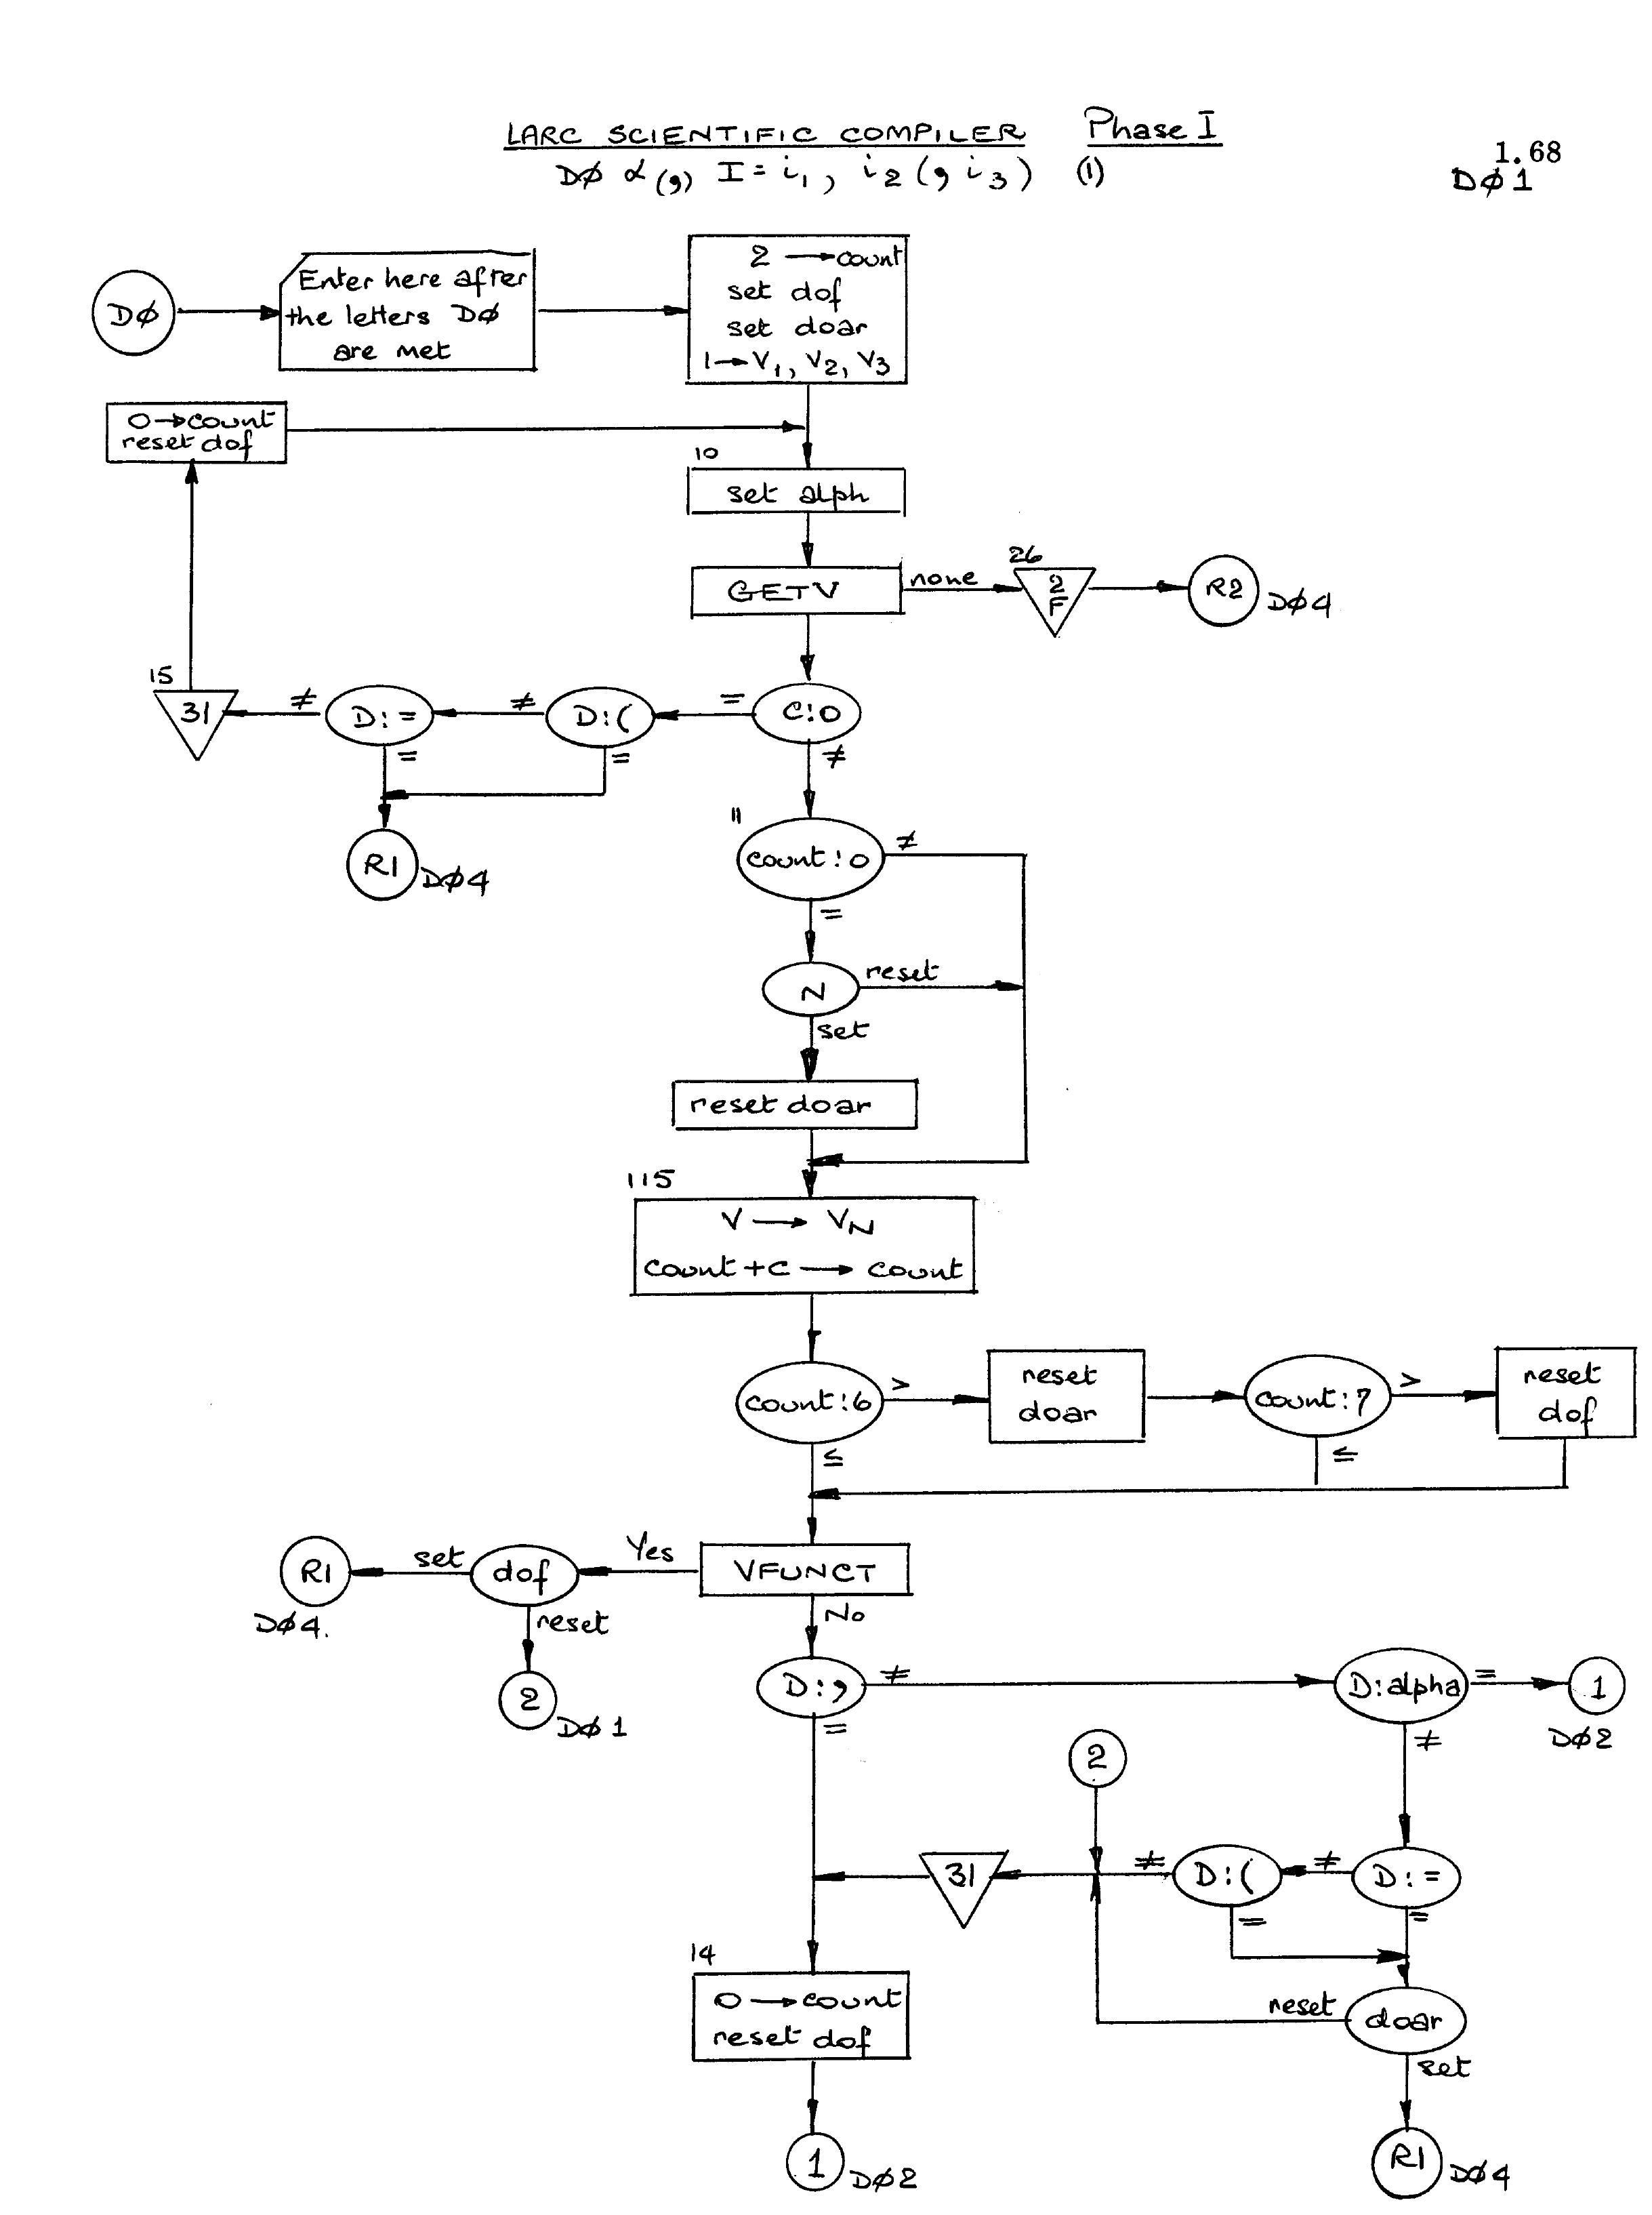 LARC SCIENTIFIC COMPILER Phase I
1.68
DØ α (,) I = i₁, i₂ (, i₃) (1)
DØ1
DØ
Enter here after
the letters DØ
are met
2 → count
set dof
set doar
1 → V₁, V₂, V₃
0 → count
reset dof
10
set alph
GETV
none
26
2
F
R2
DØ4
15
31
≠
D:=
≠
D:(
=
C:0
=
=
≠
R1
DØ4
11
count:0
≠
=
N
reset
set
reset doar
115
V → VN
count + C → count
count:6
>
reset
doar
count:7
>
reset
dof
≤
≤
R1
set
dof
Yes
VFUNCT
DØ4.
reset
No
2
DØ1
D:,
≠
D:alpha
=
1
=
≠
DØ2
2
31
≠
D:(
≠
D:=
=
=
14
0 → count
reset dof
reset
doar
set
1
DØ2
R1
DØ4